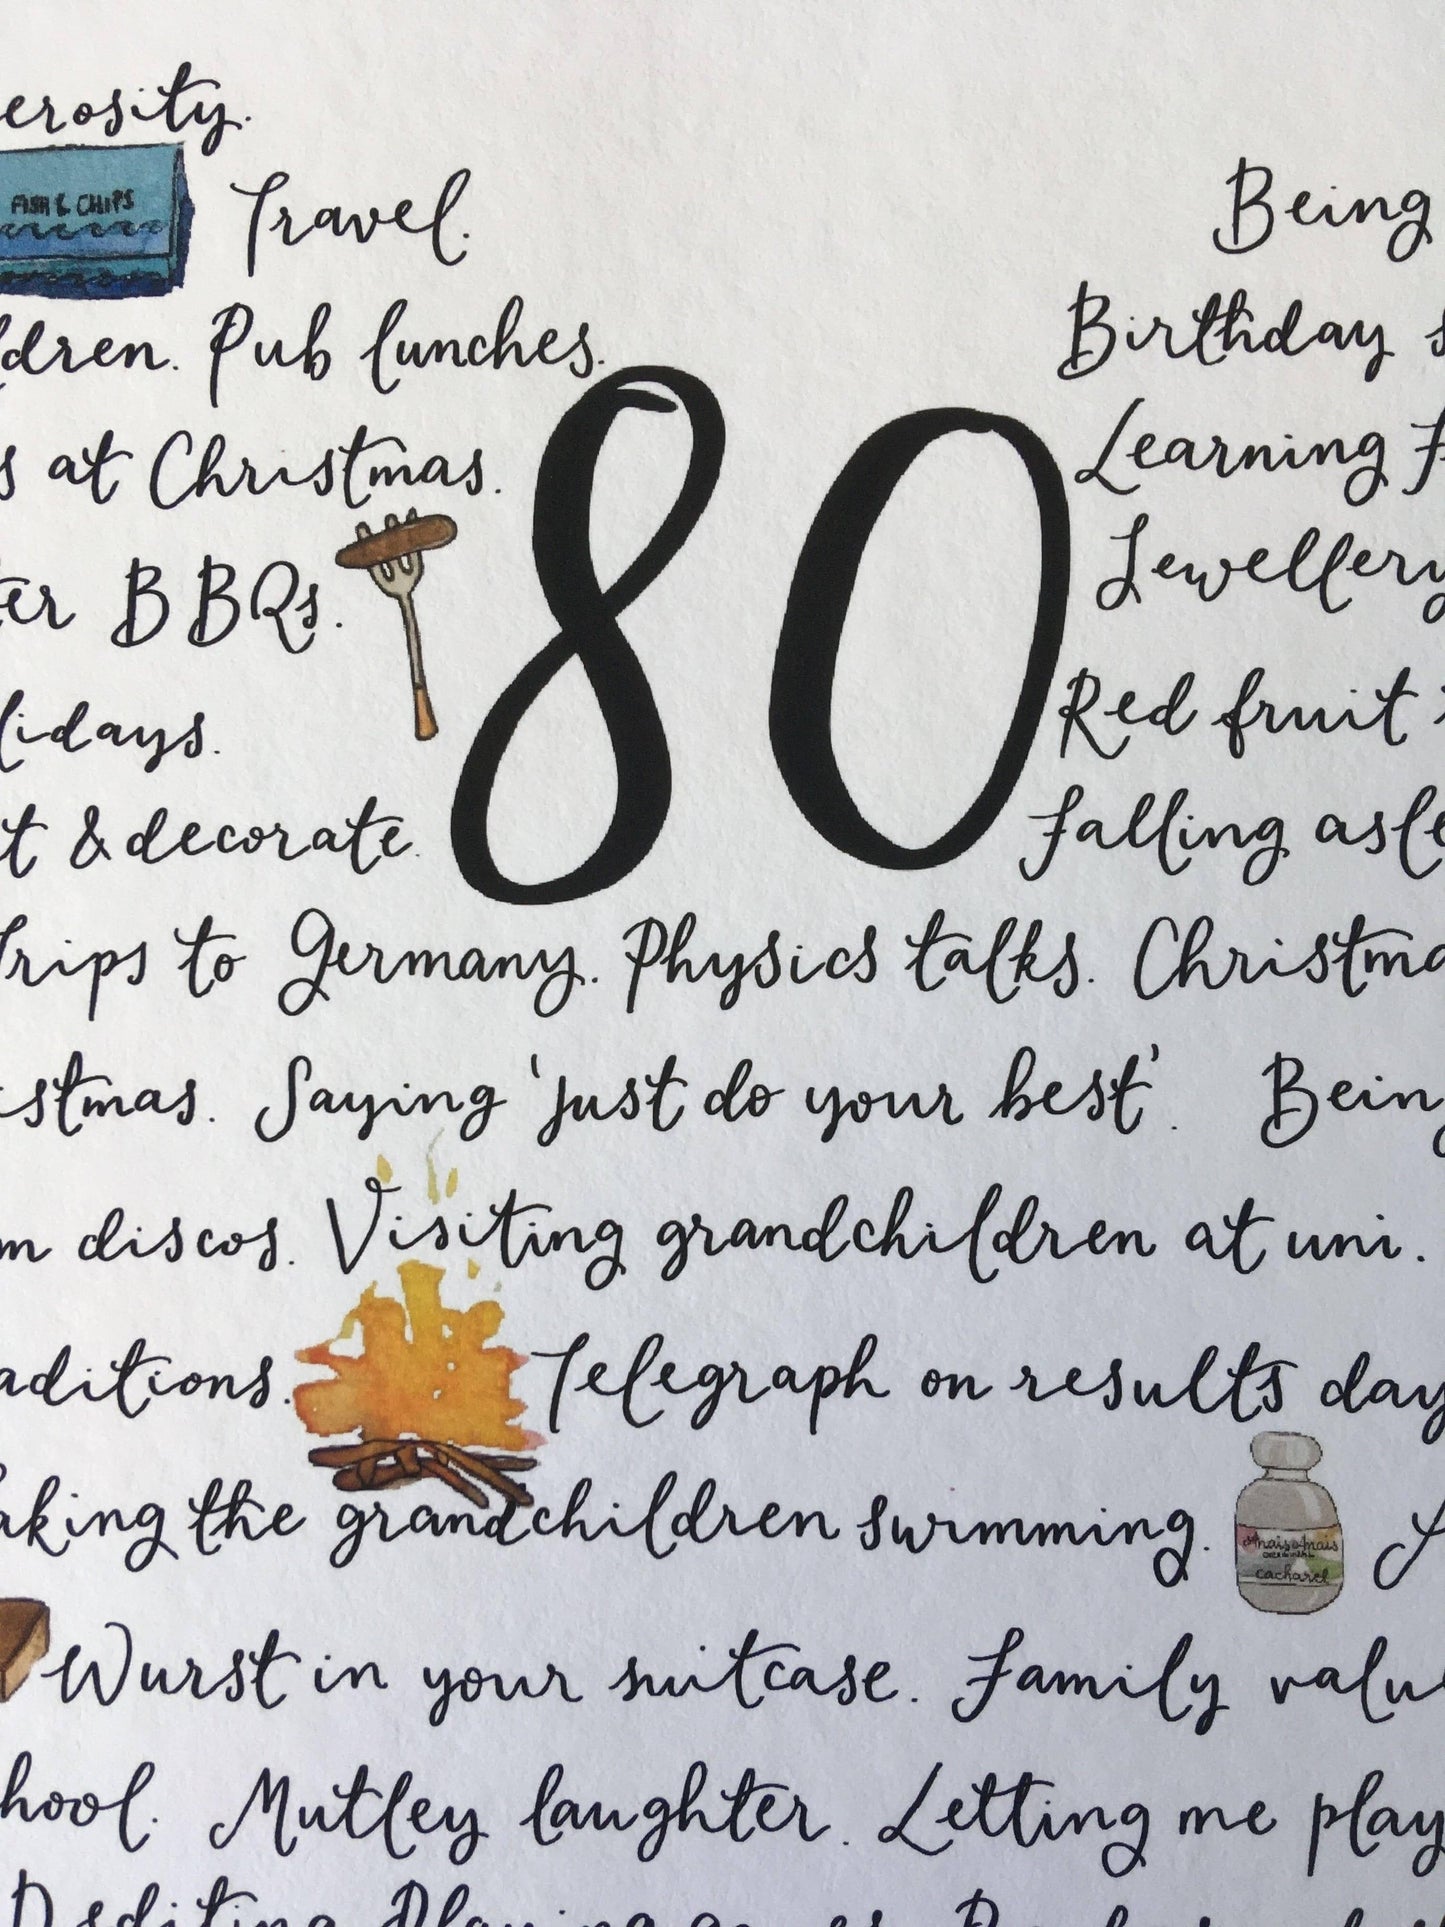 erosity.
FISH & CHIPS Travel. Being
dren. Pub lunches. Birthday
s at Christmas. 80 Learning
ter BBQs. Jewellery
lidays. Red fruit
t & decorate. Falling asle
Trips to Germany. Physics talks. Christma
istmas. Saying 'just do your best'. Being
m discos. Visiting grandchildren at uni.
aditions. Telegraph on results day
aking the grandchildren swimming. anais anais ORIGINAL cacharel
Wurst in your suitcase. Family valu
hool. Mutley laughter. Letting me play